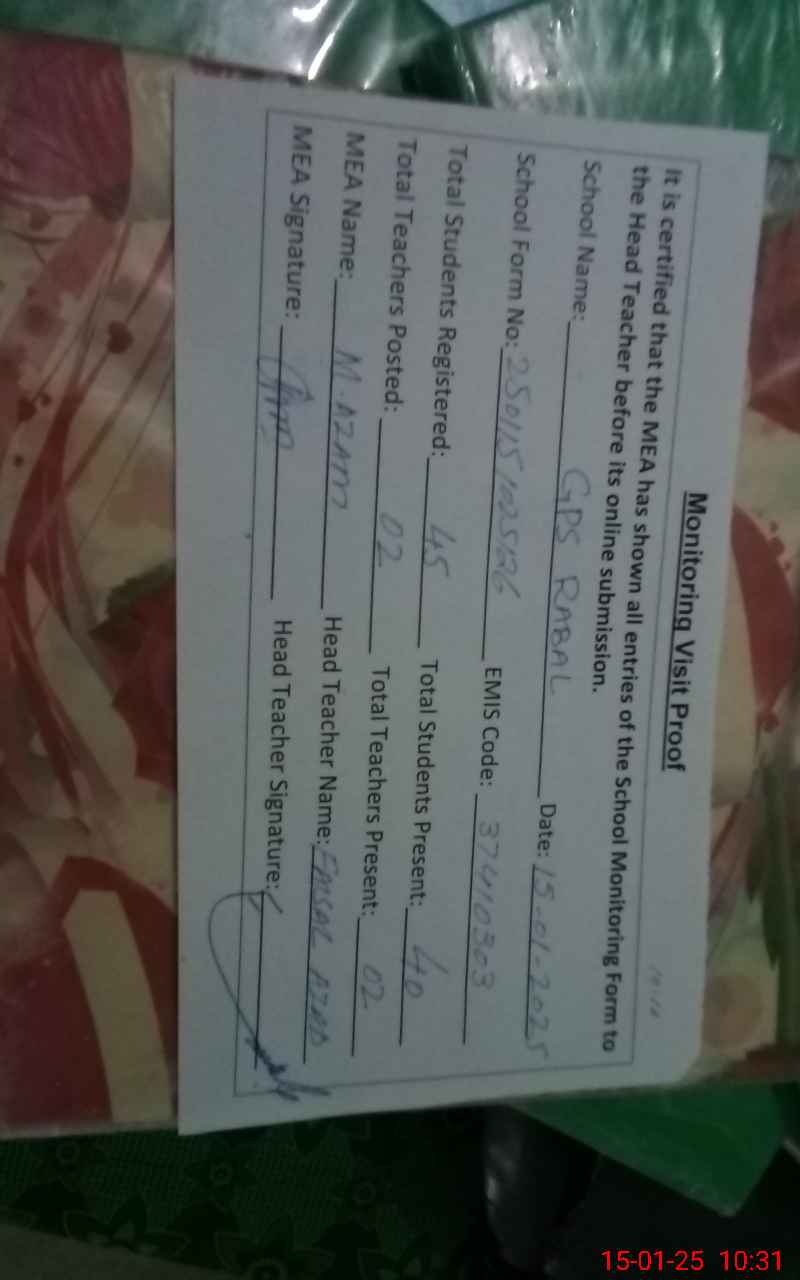 Monitoring Visit Proof
It is certified that the MEA has shown all entries of the School Monitoring Form to
the Head Teacher before its online submission.
School Name: GPS RABAL Date: 15-01-2025
School Form No: 250115 EMIS Code: 37410303
Total Students Registered: 45 Total Students Present: 40
Total Teachers Posted: 02 Total Teachers Present: 02
MEA Name: M. AZAM Head Teacher Name: FAISAL AZAD
MEA Signature: Head Teacher Signature:
15-01-25 10:31